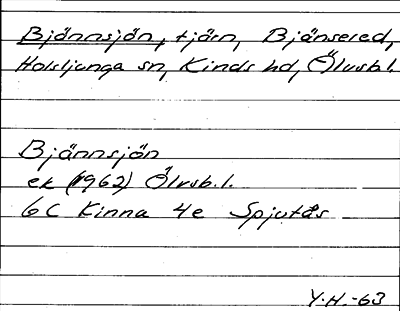 Bjännsjön, tjärn, Bjänsered,
Holsljunga sn, Kinds hd, Älvsb.l.
Bjännsjön
ek (1962) Älvsb.l.
6C Kinna 4e Spjutås
Y.H.-63